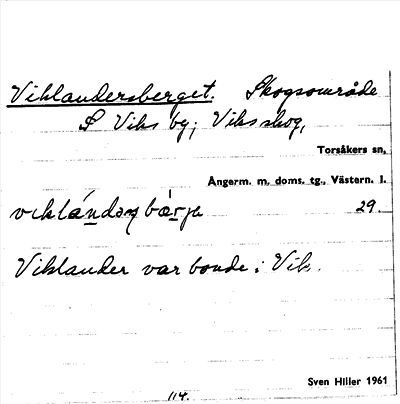 Viklandersberget. Skogsområde
S Viks by; Viks skog,
Torsåkers sn,
Ångerm. m. doms. tg., Västern. l.
29.
Viklander var bonde i Vik.
Sven Hiller 1961
114.